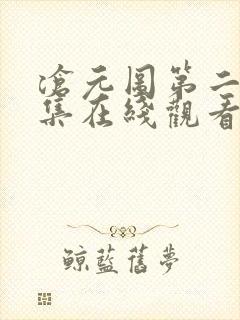 滄元圖第二
集在綫觀看
鯨藍舊夢